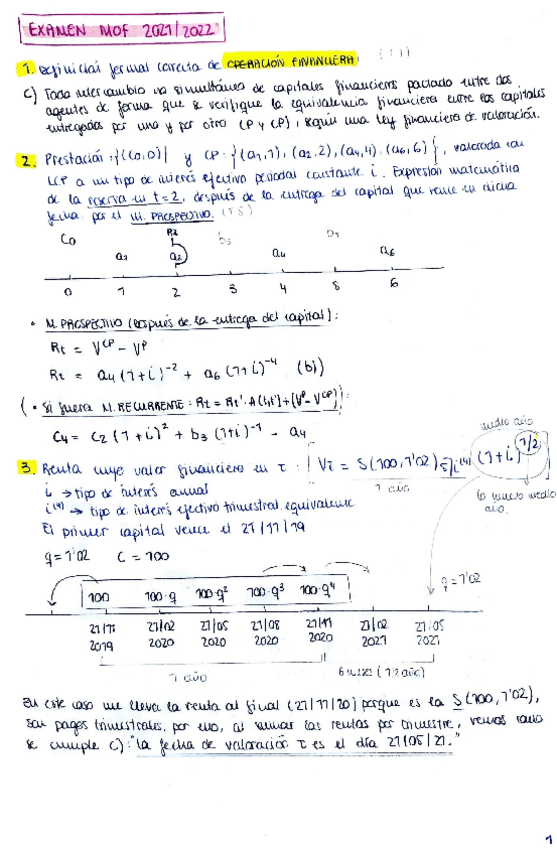 EXAMEN MOF 2021/2022
1. Definición formal correcta de OPERACIÓN FINANCIERA:
c) Todo intercambio no simultáneo de capitales financieros pactado entre dos
agentes de forma que se verifique la equivalencia financiera entre los capitales
entregados por uno y por otro (P y CP), según una ley financiera de valoración.
2. Prestación: {(C0,0)} y CP: {(a1,1), (a2,2), (a4,4), (a6,6)}, valorada con
LCP a un tipo de interés efectivo periodal constante i. Expresión matemática
de la reserva en t=2, después de la entrega del capital que vence en dicha
fecha por el M. PROSPECTIVO. (TS)
C0 a1 R2 a2 b3 a4 a6
0 1 2 3 4 5 6
• M. PROSPECTIVO (después de la entrega del capital):
Rt = V^CP - V^P
Rt = a4 (1+i)^-2 + a6 (1+i)^-4 (b)
(• Si fuera M. RECURRENTE:
C4 = C2 (1+i)^2 + b3 (1+i)^-1 - a4
medio año
3. Renta cuyo valor financiero en τ: Vτ = S(100, 1'02)5┐i^(4) (1+i)^1/2
1 año
i → tipo de interés anual
i^(4) → tipo de interés efectivo trimestral equivalente
El primer capital vence el 21/11/19
q = 1'02 C = 100
q = 1'02
100 100·q 100·q^2 100·q^3 100·q^4
21/11 21/02 21/05 21/08 21/11 21/02 21/05
2019 2020 2020 2020 2020 2021 2021
1 año 6 meses (1/2 año)
En este caso me lleva la renta al final (21/11/20) porque es la S(100, 1'02),
son pagos trimestrales, por ello, al sumar las rentas por trimestre, vemos como
se cumple c): "la fecha de valoración τ es el día 21/05/21."
1